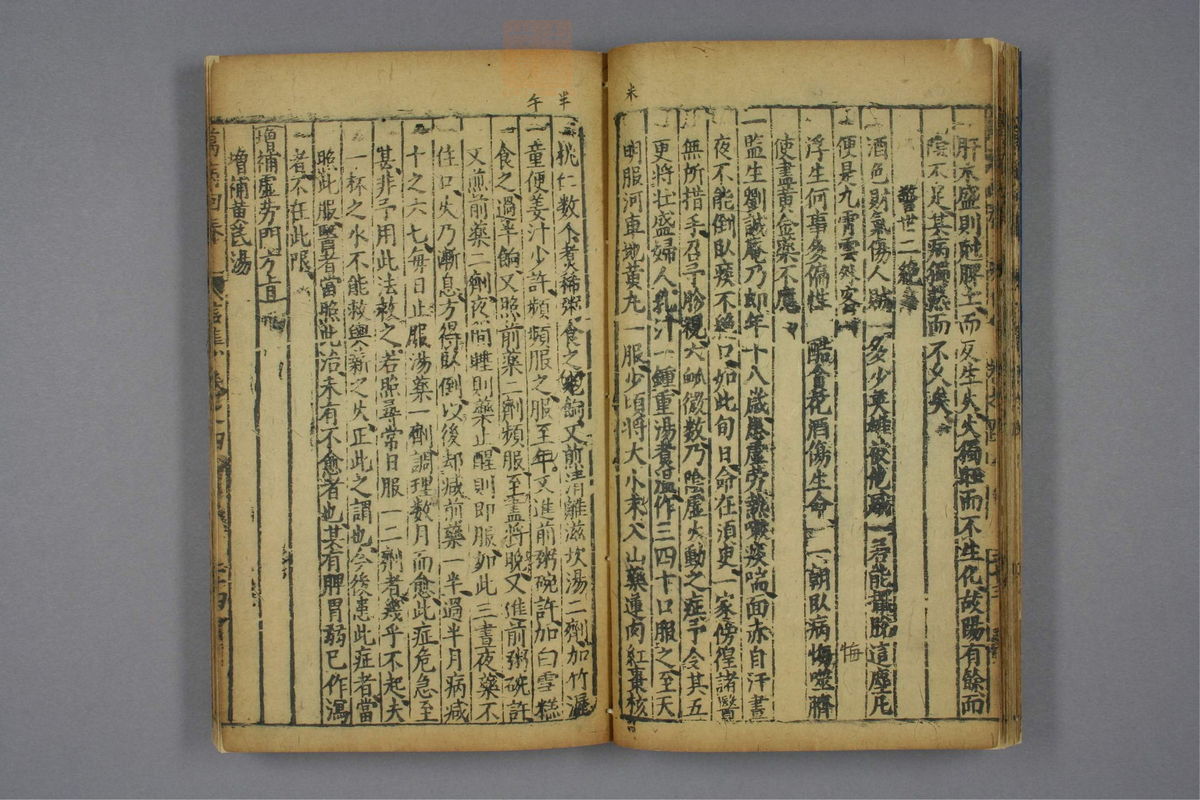 肝木盛則尅脾土而反生火火獨旺而不生化故陽有餘而
陰不足其病獨熱而不久矣
警世二絶
酒色財氣傷人賊 多少英雄被他惑 若能擺脱這塵凡
便是九霄雲外客
浮生何事多偏性 酷貪花酒傷生命 一朝臥病悔噬臍
使盡黄金藥不應
一監生劉誠庵乃郎年十八歳患虛劳熱嗽痰喘面赤自汗晝
夜不能倒臥痰不絶口如此旬日命在須臾一家傍徨諸醫
無所措手召予胗視六脉微数乃陰虛火動之症予令其五
更将壮盛婦人乳汁一鍾重湯煮温作三四十口服之至天
明服河車地黄丸一服少頃将大小米入山藥蓮肉紅棗核
桃仁数个煮稀粥食之半餉又煎清離滋坎湯二劑加竹瀝
童便姜汁少許頻頻服之服至午又進前粥碗許加白雪糕
食之過半餉又照前藥二劑頻服至盡将晚又進前粥碗許
又煎前藥二劑夜間睡則藥止醒則即服如此三晝夜藥不
住口火乃漸息方得臥倒以後却减前藥一半過半月病减
十之六七每日止服湯藥一劑調理数月而愈此症危急至
甚非予用此法救之若照尋常日服一二劑者幾乎不起夫
一杯之水不能救輿薪之火正此之謂也今後患此症者當
照此服醫者當照此治未有不愈者也其有脾胃弱已作瀉
者不在此限
增補虛劳門方目
增補黄芪湯
萬病回春
米
半
午
悔